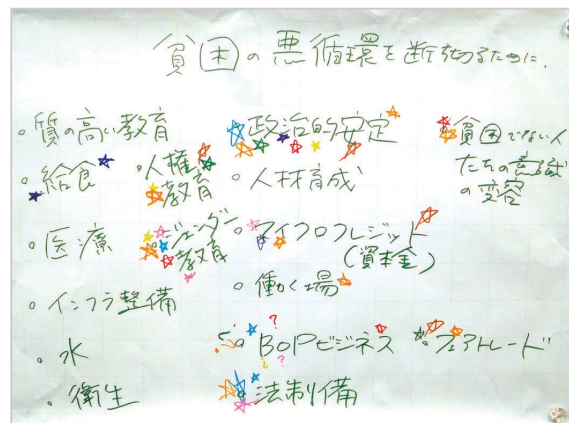 貧困の悪循環を断ち切るために.
。質の高い教育
。給食
。医療
。インフラ整備
。水
。衛生
。人権
教育
。ジェンダー
教育
。政治的安定
。人材育成
。マイクロクレジット
(資本金)
。働く場
。BOPビジネス
??
??
。法制備
。貧困でない人
たちの意識
の変容
。フェアトレード